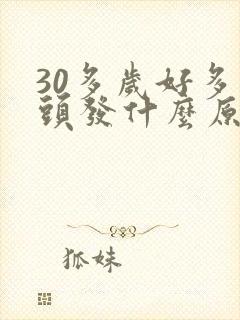 30多歲好多
頭發什麼原
狐妹